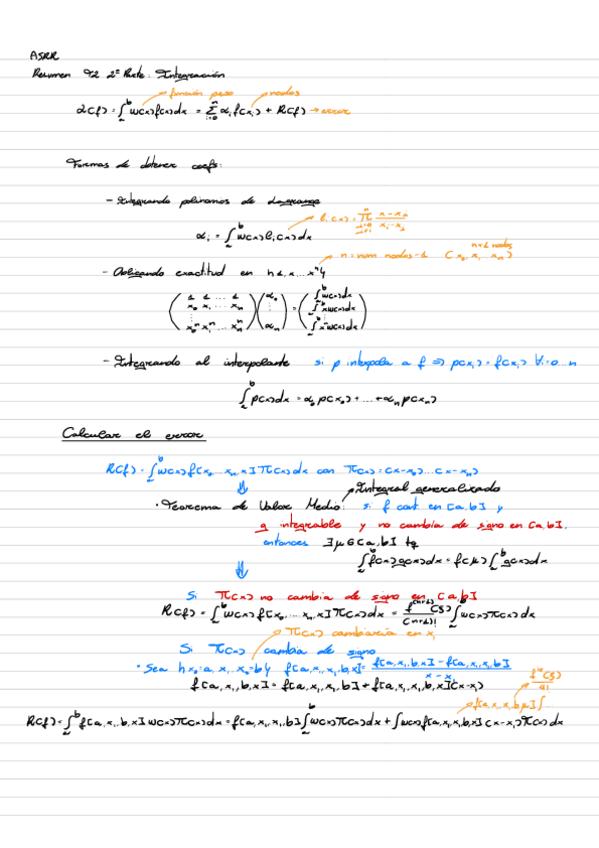 ASRR
Resumen T2 2ª Parte: Integración
función peso nodos
L(f) = ∫_a^b w(x)f(x)dx = Σ_{i=0}^n α_i f(x_i) + R(f) → error
Formas de obtener coefs:
- Integrando polinomios de Lagrange
l_i(x) = Π (x-x_j)/(x_i-x_j)
α_i = ∫_a^b w(x)l_i(x)dx
n+1 nodos
n = num nodos-1 (x_0, x_1 x_n)
- Aplicando exactitud en {1, x, ... x^n}
(1 1 ... 1) (α_0) = (∫_a^b w(x)dx)
(x_0 x_1 ... x_n) (∫_a^b xw(x)dx)
(x_0^n x_1^n ... x_n^n) (α_n) (∫_a^b x^n w(x)dx)
- Integrando al interpolante si p interpola a f ⇒ p(x_i) = f(x_i) ∀i=0...n
∫_a^b p(x)dx = α_0 p(x_0) + ... + α_n p(x_n)
Calcular el error
R(f) = ∫_a^b w(x)f[x_0, ... x_n, x]Π(x)dx con Π(x) = (x-x_0)...(x-x_n)
Integral generalizado
· Teorema de Valor Medio: si f cont. en [a,b] y
g integrable y no cambia de signo en [a,b].
entonces ∃μ∈[a,b] tq
∫_a^b f(x)g(x)dx = f(μ)∫_a^b g(x)dx
Si Π(x) no cambia de signo en [a,b]
R(f) = ∫_a^b w(x)f[x_0, ..., x_n, x]Π(x)dx = f^(n+1)(ξ)/(n+1)! ∫_a^b w(x)Π(x)dx
Π(x) cambiaría en x_1
Si Π(x) cambia de signo
· Sea {x_0=a, x_1, x_2=b} f[a,x_1,x_1,b,x] = (f[a,x_1,b,x] - f[a,x_1,x_1,b])/(x-x_1)
f[a,x_1,b,x] = f[a,x_1,x_1,b] + f[a,x_1,x_1,b,x](x-x_1)
f^4(ξ)/4!
f[a,x_1,x_1,b,μ]∫...
R(f) = ∫_a^b f[a,x_1,b,x]w(x)Π(x)dx = f[a,x_1,x_1,b]∫_a^b w(x)Π(x)dx + ∫w(x)f[a,x_1,x_1,b,x](x-x_1)Π(x)dx